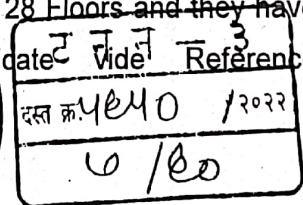 28 Floors and they hav
ट न न ३
date Vide Referenc
दस्त क्र.५९५० /२०२२
७ /९०